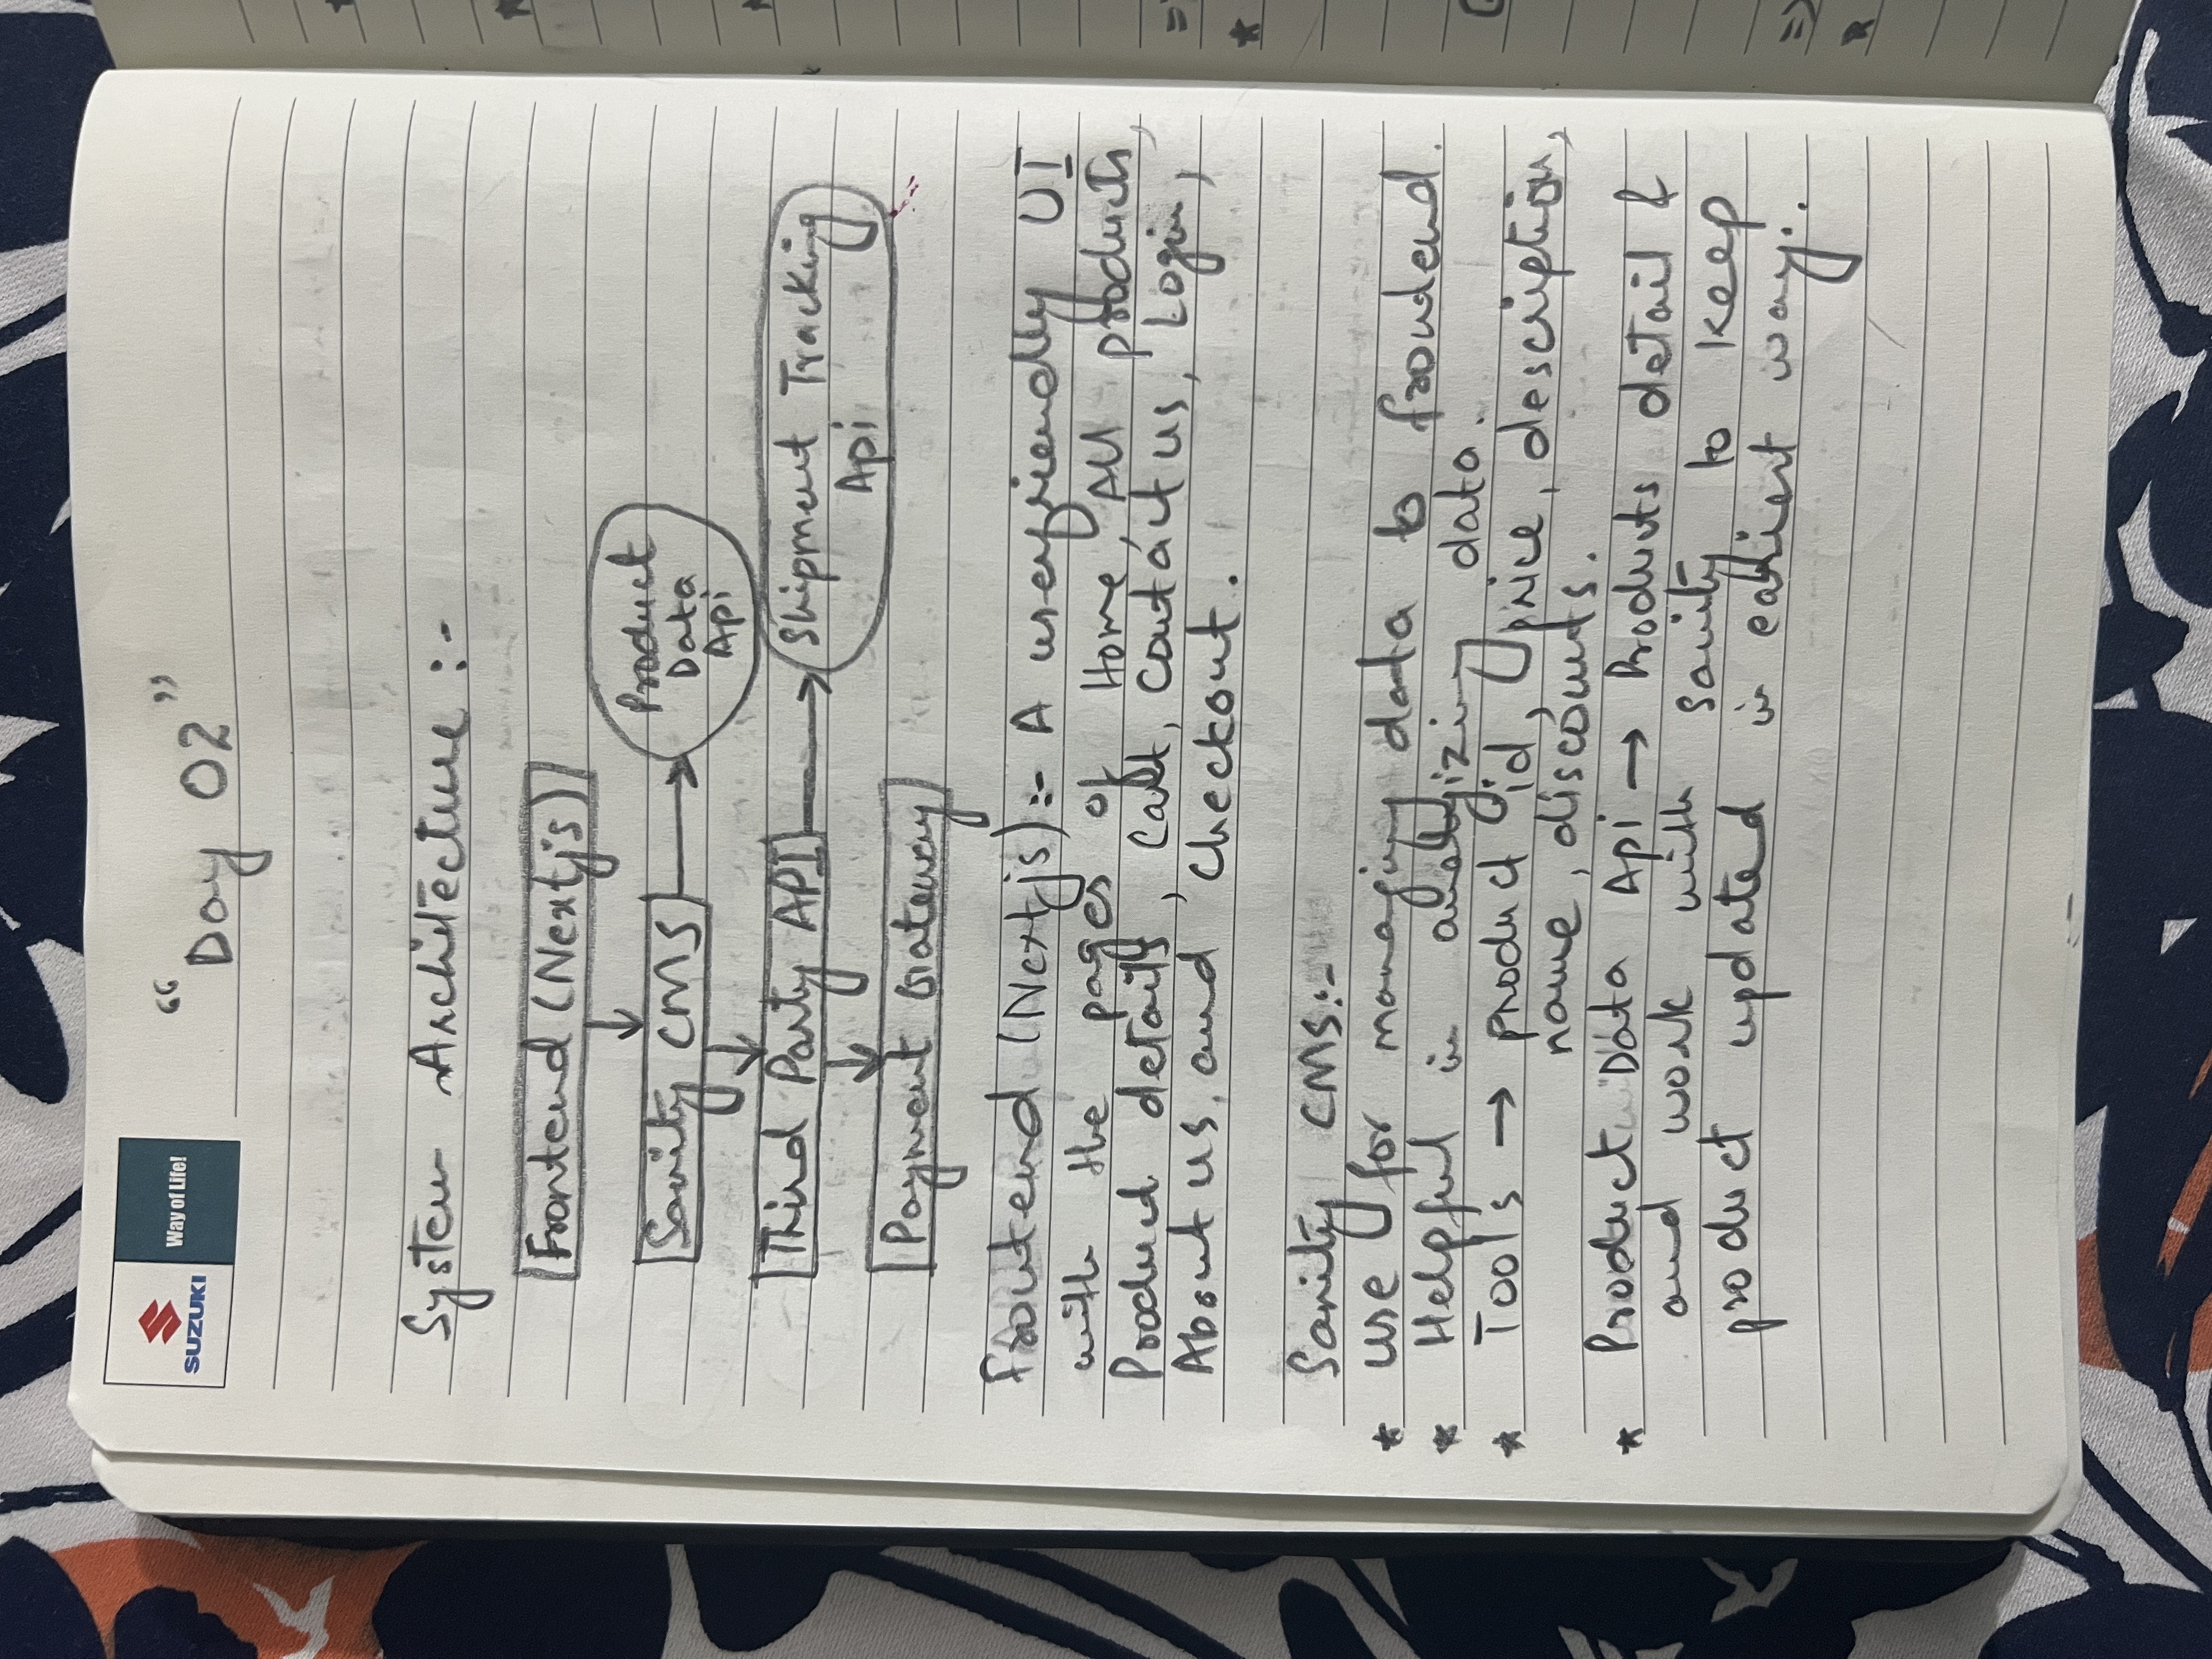 SUZUKI
Way of Life!
"Day 02"
System Architecture :-
Frontend (Nextjs)
Sanity CMS
Product
Data
Api
Third Party API
Shipment Tracking
Api
Payment Gateway
Frontend (Nextjs):- A userfriendly UI
with the pages of Home, All products,
Product details, Cart, Contact us, Login,
About us, and Checkout.
Sanity CMS:-
* use for managing data to frontend.
* Helpful in analyizing data.
* Tools → product id, price, description,
name, discounts.
* Product Data Api → Products detail &
and work with sanity to keep
product updated in easiest way.